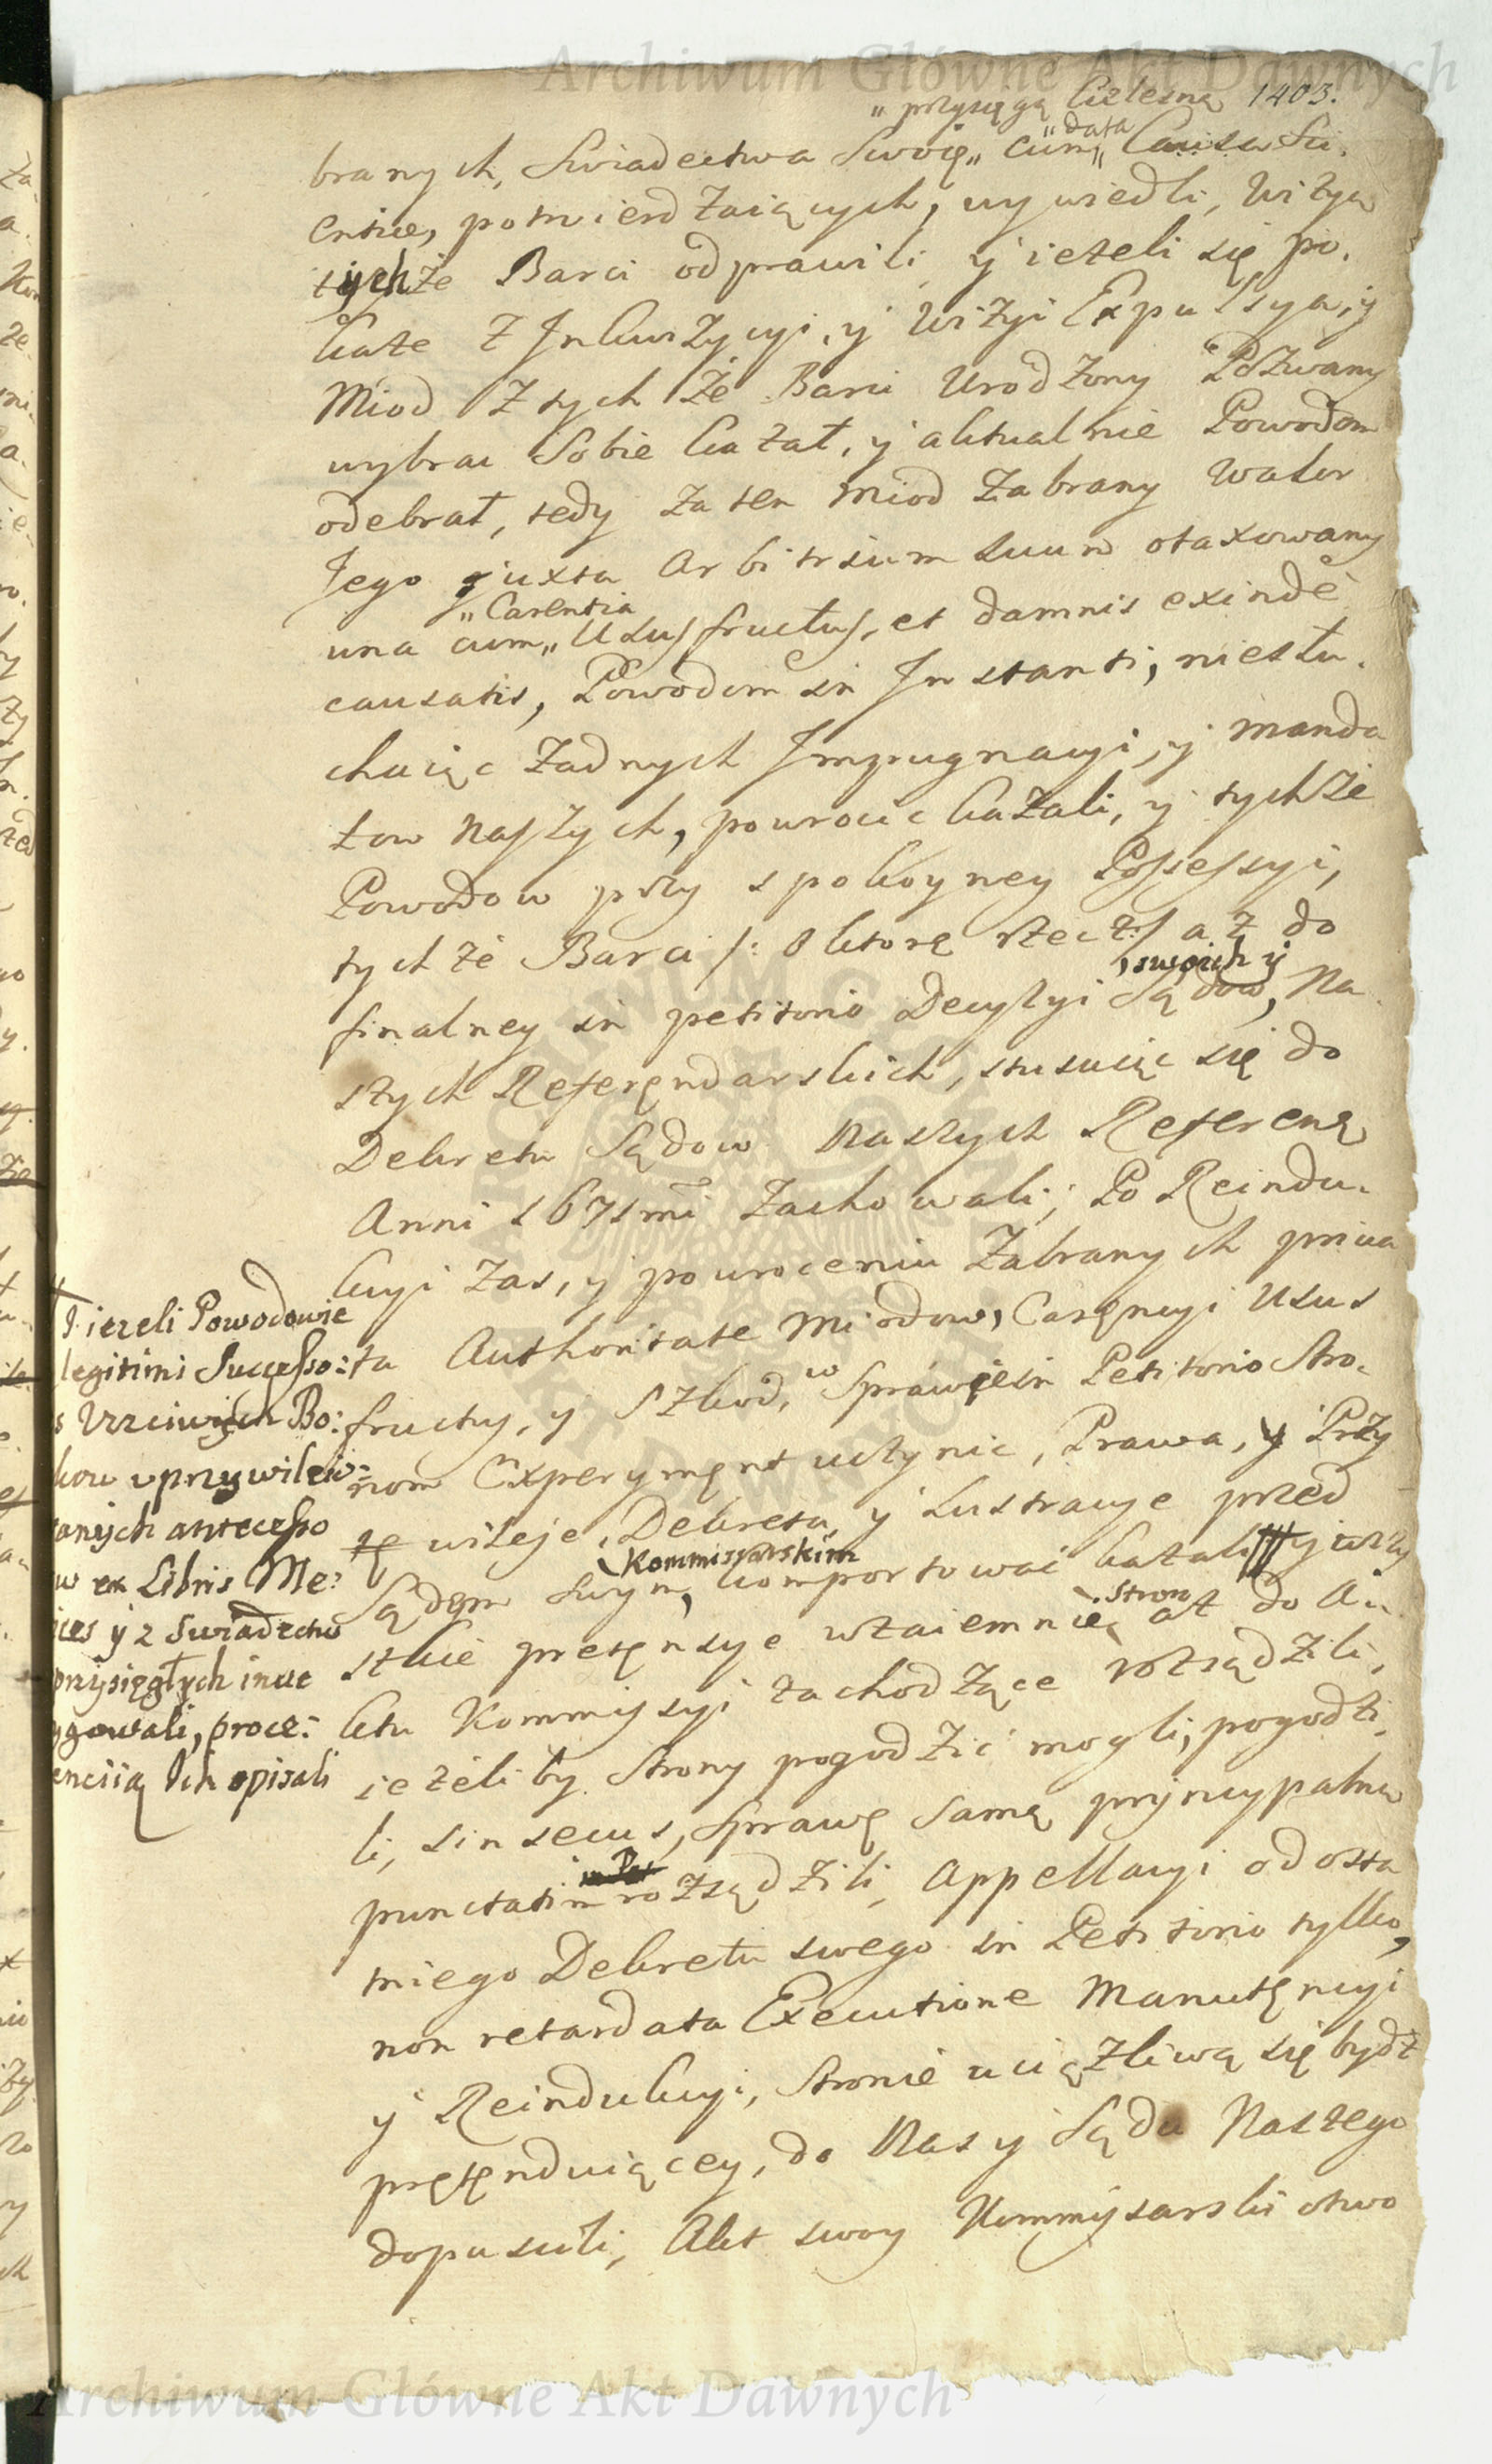 Archiwum Główne Akt Dawnych
„ przysięgą Cielesną 1403.
„ data
branych, Swiadectwa Swoię „ cum „ Causa Sci.
entiae, potwierdzaiących, wywiedli, Wizyą
tychże Barci odprawili y ieżeli się po.
każe z Inkwizycyi, y Wizyi Expulsya, y
Miod z tychże Barci Urodzony Pozwany
wybrac Sobie kazał, y aktualnie Powodom
odebrał, tedy za ten Miod zabrany Walor
Jego juxta Arbitrium suum otaxowany
„ Carentia
una cum „ Usus fructus, et damnis exinde
causatis, Powodom in Instanti, niesłu.
chaiąc żadnych Impugnacyi, y manda
tow naszych, powrocic kazali, y tychże
Powodow przy spokoyney Possessyi,
tychże Barci /: o ktorę rzecz :/ aż do
, swoich y
finalney in petitorio Decyzyi Sądow, Na
szych Referendarskich, stosuiąc się do
Dekretu Sądow Naszych Referen
Anni 1671mi zachowali; Po Reindu.
kcyi zas, y powroceniu zabranych priva
ta Authoritate Miodow, Carencyi Usus
fructus, y Szkod, w Sprawie in Petitorio Stro.
nom Experyment uczynic, Prawa, y Przy
wileje, Dekreta, y Lustracye przed
Kommissarskim
Sądem Swym, komportować kazali y wszy
Stron
stkie pretensye wzaiemnie aż do A
ktu Kommissyi zachodzące rozsądzili,
ieżeliby Strony pogodzic mogli, pogodzi
li, sin secus, Sprawę Samą pryncypalną
punctatim rozsądzili, Appellacyi od osta
tniego Dekretu swego in Petitorio tylko,
non retardata Executione Manutencyi
y Reindukcyi, Stronie uciążliwą się bydź
pretenduiącey, do Nas y Sądu Naszego
dopuscili, Akt swoy Kommissarski otwo
J ieżeli Powodowie
legitimi Successo:
s Uczciwych Bo:
kow uprzywilejo:
anych antecesso
w ex Libris Me:
ices y z Swiadectw
przysięgłych inve
ygowali, proce:
enciią Ich opisali
ARCHIWUM GŁÓWNE AKT DAWNYCH
Archiwum Główne Akt Dawnych